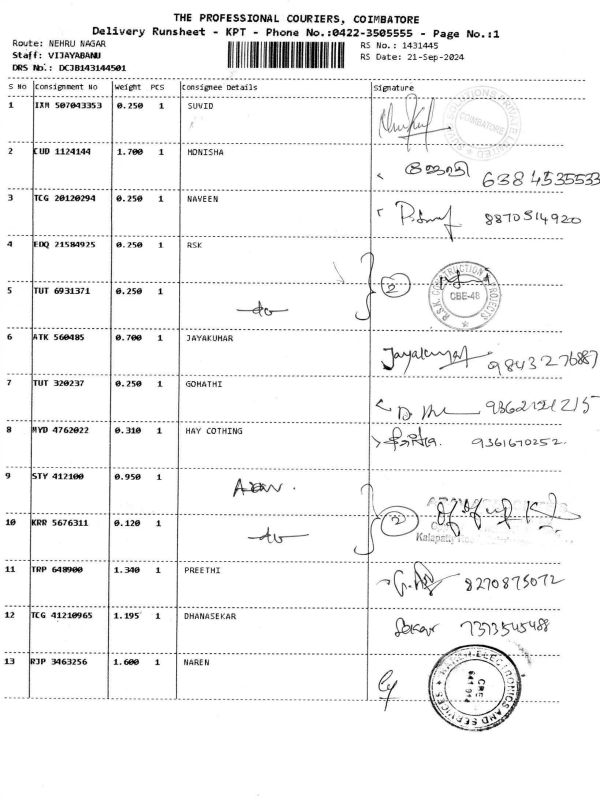 THE PROFESSIONAL COURIERS, COIMBATORE
Delivery Runsheet - KPT - Phone No.:0422-3505555 - Page No.:1
Route: NEHRU NAGAR RS No.: 1431445
Staff: VIJAYABANU RS Date: 21-Sep-2024
DRS No.: DCJB143144501
S No Consignment No Weight PCS Consignee Details Signature
1 IXM 507043353 0.250 1 SUVID
COIMBATORE
2 CUD 1124144 1.700 1 MONISHA 6384535533
3 TCG 20120294 0.250 1 NAVEEN 8870514920
4 EDQ 21584925 0.250 1 RSK 2 R.S.K. CONSTRUCTION & PROJECTS CBE-48
5 TUT 6931371 0.250 1 do
6 ATK 560485 0.700 1 JAYAKUMAR Jayakumar
7 TUT 320237 0.250 1 GOMATHI
8 MYD 4762022 0.310 1 HAY COTHING 9361670252.
9 STY 412100 0.950 1
10 KRR 5676311 0.120 1 do 2
Kalapatti
11 TRP 648900 1.340 1 PREETHI 8270875072
12 TCG 41210965 1.195 1 DHANASEKAR Sekar 7373545488
13 RJP 3463256 1.600 1 NAREN ELECTRONICS AND SERVICES CBE 641 014